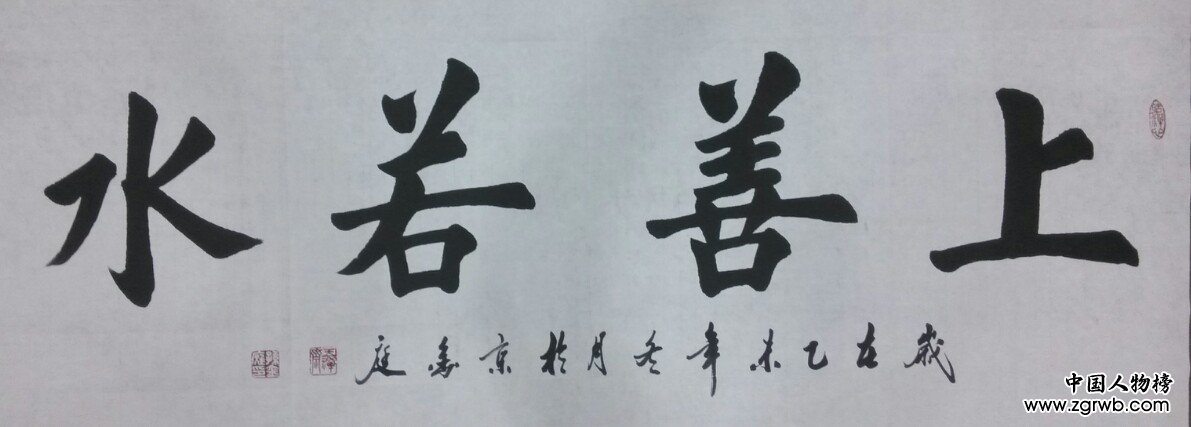 上善若水
歲在乙未年冬月於京秦庭
中国人物榜
www.zgrwb.com